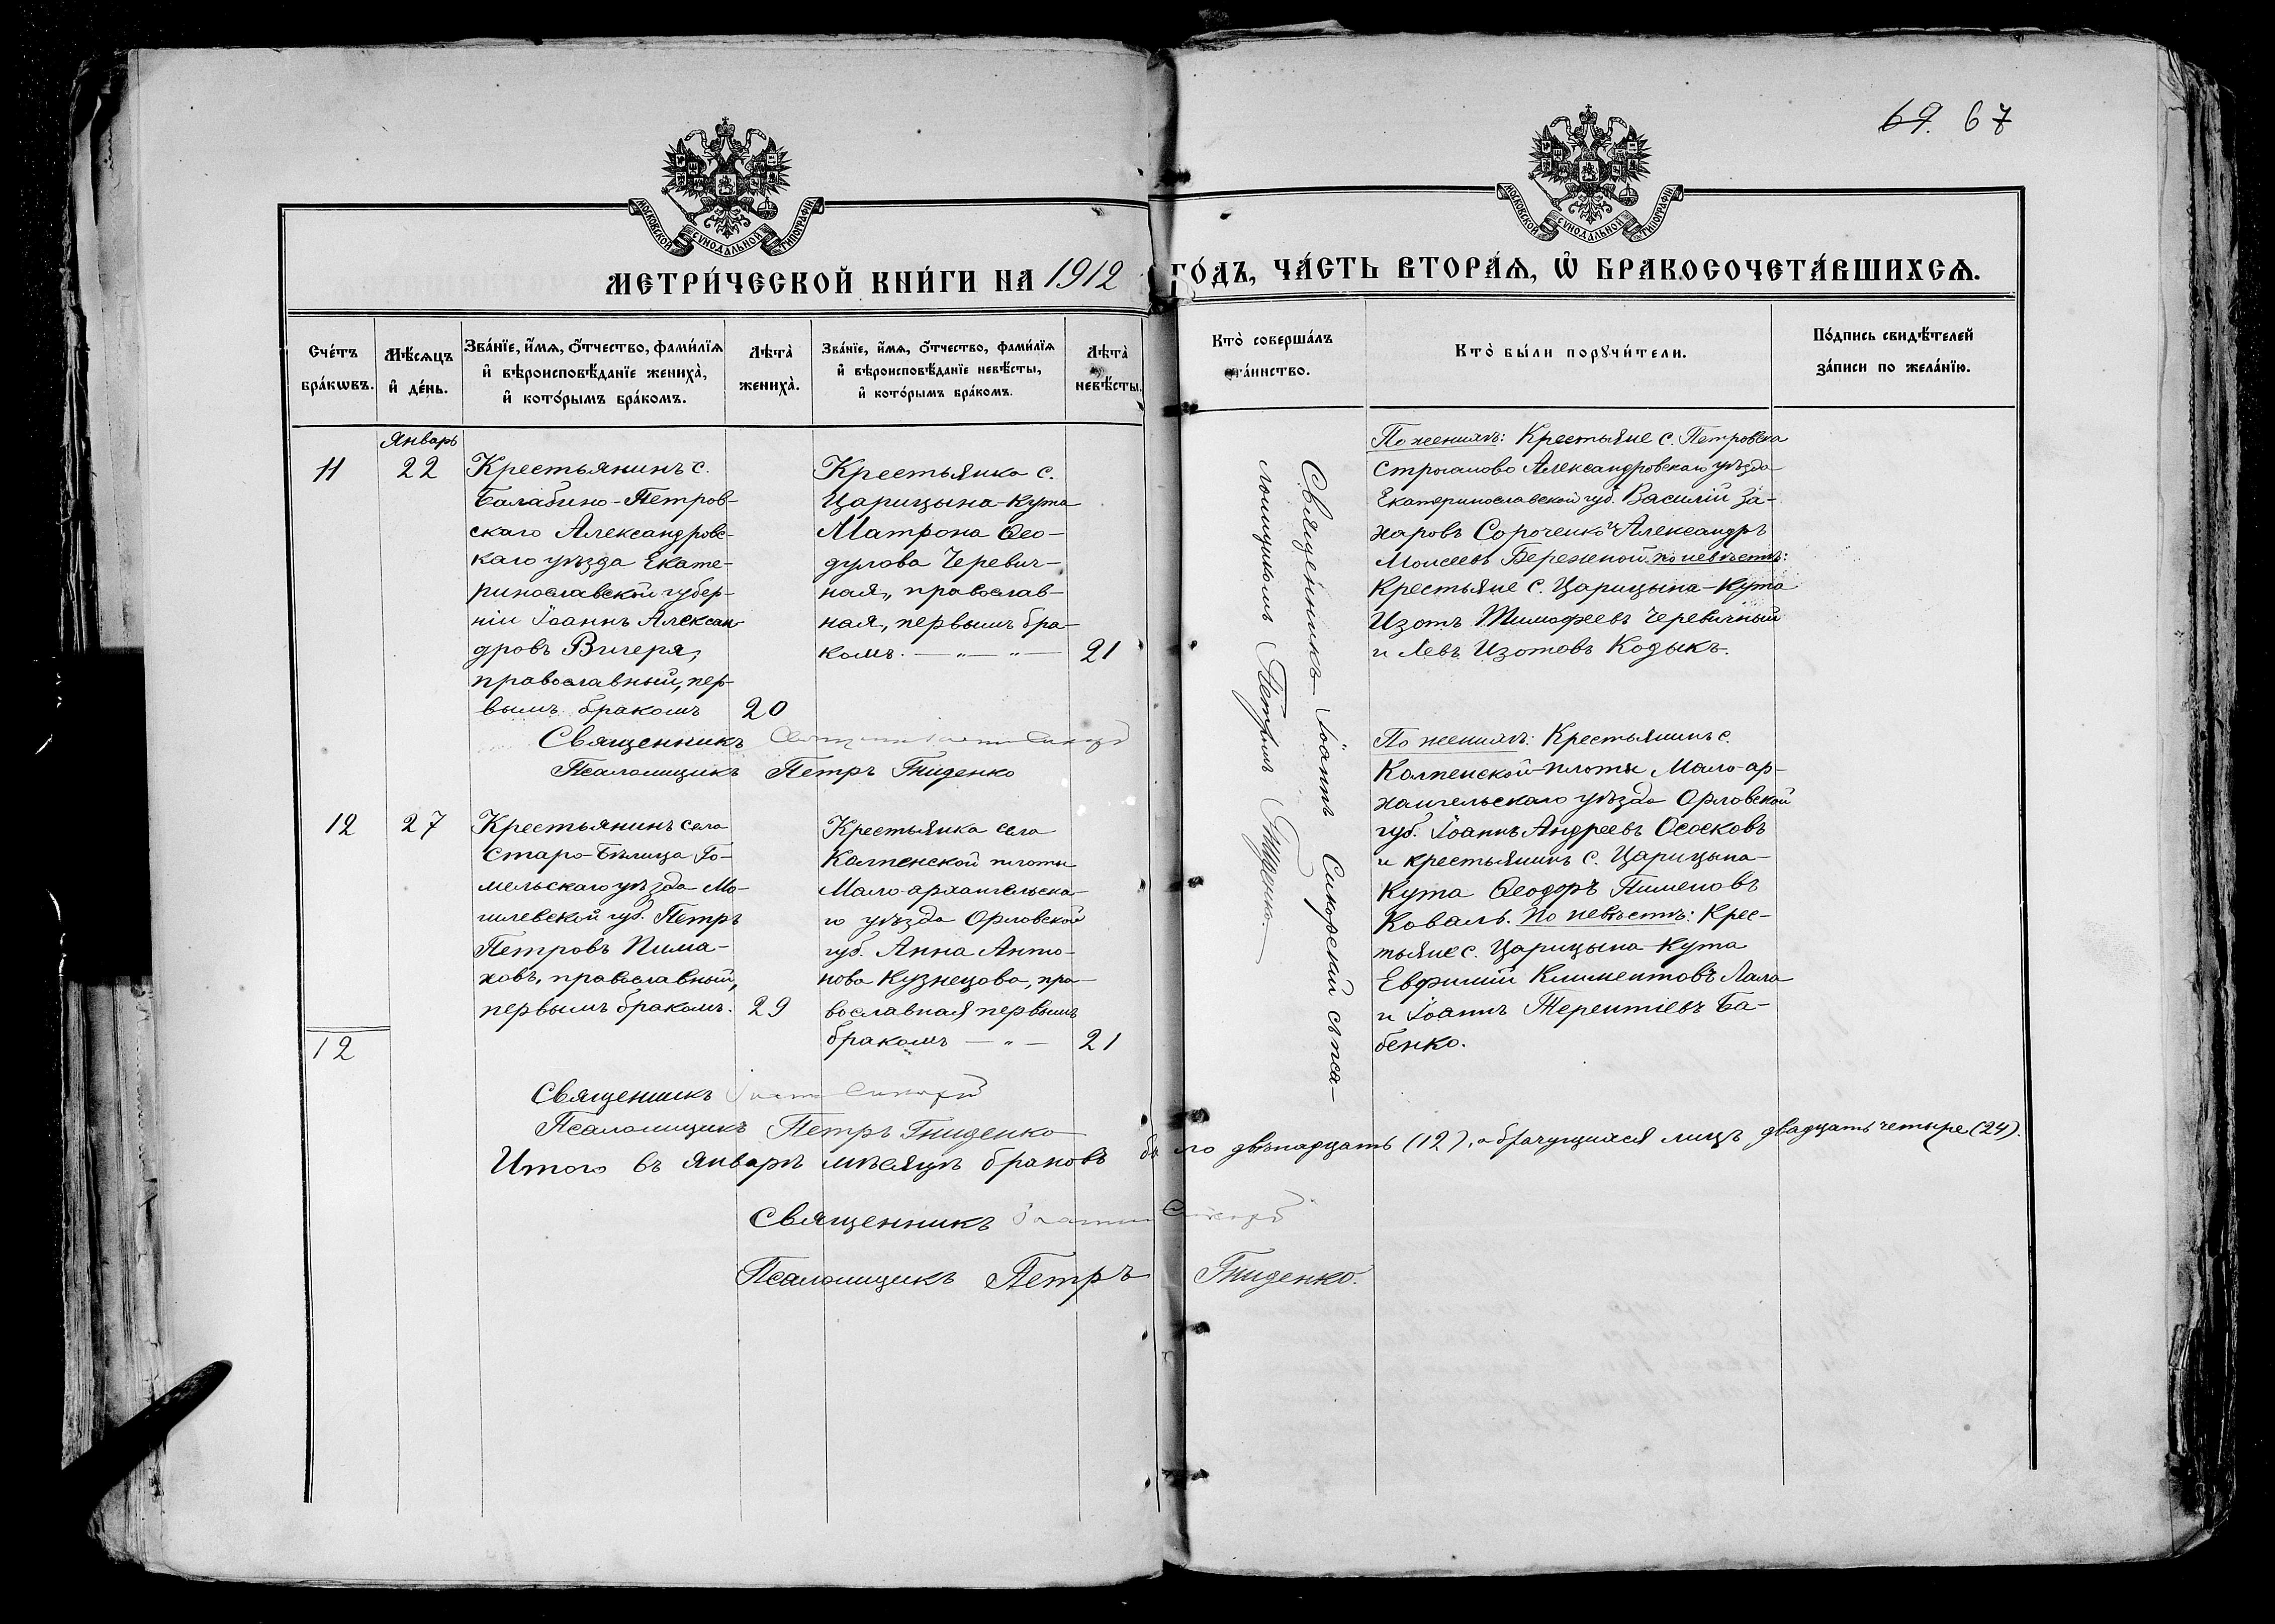 69. 67
МОСКОВСКОЙ СУНОДАЛЬНОЙ ТИПОГРАФІИ
МОСКОВСКОЙ СУНОДАЛЬНОЙ ТИПОГРАФІИ
МЕТРИ́ЧЕСКОЙ КНИ́ГИ НА 1912 ГО́ДЪ, ЧА́СТЬ ВТОРА́Ѧ, Ѡ҆ БРАКОСОЧЕТА́ВШИХСѦ.
Сче́тъ
бра́кѡвъ.
Мѣ́сѧцъ
и҆ де́нь.
Зва́нїе, и҆́мѧ, ѻ҆́тчество, фами́лїѧ
и҆ вѣроисповѣ́данїе жениха̀,
и҆ кото́рымъ бра́комъ.
Лѣта̀
жениха̀.
Зва́нїе, и҆́мѧ, ѻ҆́тчество, фами́лїѧ
и҆ вѣроисповѣ́данїе невѣ́сты,
и҆ кото́рымъ бра́комъ.
Лѣта̀
невѣ́сты.
Кто̀ соверша́лъ
та́инство.
Кто̀ бы́ли порꙋчи́тели.
По́дпись свидѣ́телей
за́писи по жела́нїю.
11
Январь
22
Крестьянинъ с.
Балабино-Петров-
скаго Александровс-
каго уѣзда Екате-
ринославской губер-
ніи Іоаннъ Алексан-
дровъ Вигеря,
православный, пер-
вымъ бракомъ 20
Крестьянка с.
Царицына-Кута
Матрона Ѳео-
дулова Черевич-
ная, православ-
ная, первымъ бра-
комъ. — „ — „ — 21
Священникъ
Псаломщикъ Петръ Гниденко
Священникъ Іоаннъ Сикорскій съ пса-
ломщикомъ Петромъ Гниденко.—
По женихѣ: Крестьяне с. Петровска
Строганово Александровскаго уѣзда
Екатеринославской губ. Василій За-
харовъ Сороченко и Александръ
Моисеевъ Бережной. по невѣстѣ:
Крестьяне с. Царицына-Кута
Изотъ Тимофеевъ Черевичный
и Левъ Изотовъ Кодыкъ.
12
27
Крестьянинъ села
Старо-Бѣлица Го-
мельскаго уѣзда Мо-
гилевской губ. Петръ
Петровъ Пима-
ховъ, православный,
первымъ бракомъ. 29
Крестьянка села
Колпенской плоты
Мало-архангельска-
го уѣзда Орловской
губ. Анна Анто-
нова Кузнецова, пра-
вославная первымъ
бракомъ — „ — 21
12
По женихѣ: Крестьянинъ с.
Колпенской-плоты Мало-ар-
хангельскаго уѣзда Орловской
губ. Іоаннъ Андреевъ Ососковъ
и крестьянинъ с. Царицына-
Кута Ѳеодоръ Пименовъ
Коваль. По невѣстѣ: Крес-
тьяне с. Царицына Кута
Евфимій Климентовъ Лала
и Іоаннъ Терентіевъ Ба-
бенко.
Священникъ
Псаломщикъ Петръ Гниденко
Итого въ январѣ мѣсяцѣ браковъ было двѣнадцать (12), а брачущихся лицъ двадцать четыре (24).
Священникъ
Псаломщикъ Петръ Гниденко.